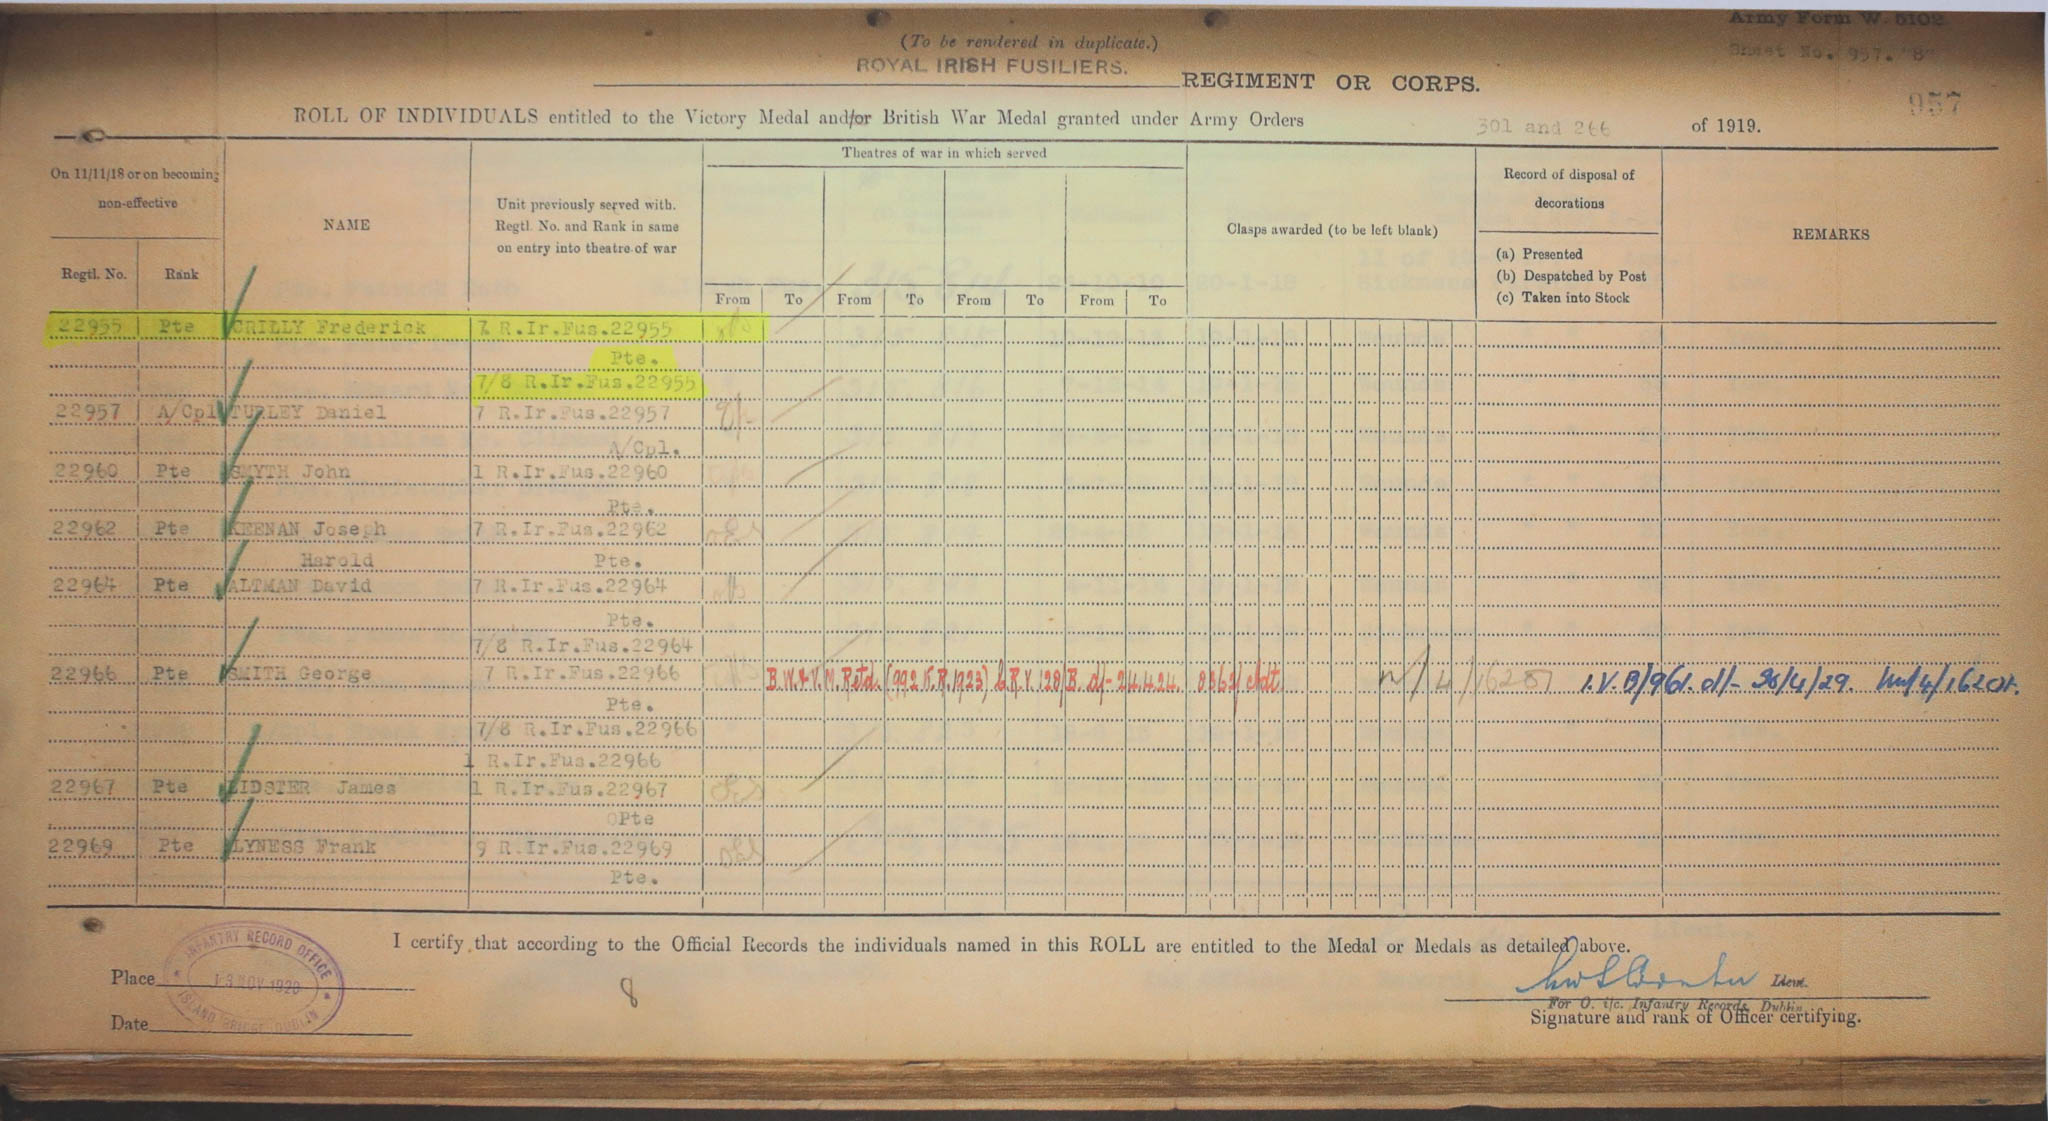 Army Form W. 5102
(To be rendered in duplicate.)
Sheet No. 957. "B"
ROYAL IRISH FUSILIERS.
REGIMENT OR CORPS.
957
ROLL OF INDIVIDUALS entitled to the Victory Medal and/or British War Medal granted under Army Orders 301 and 266 of 1919.
On 11/11/18 or on becoming non-effective
Regtl. No. Rank
NAME
Unit previously served with.
Regtl. No. and Rank in same
on entry into theatre of war
Theatres of war in which served
From To From To From To From To
Clasps awarded (to be left blank)
Record of disposal of
decorations
(a) Presented
(b) Despatched by Post
(c) Taken into Stock
REMARKS
22955 Pte CRILLY Frederick 7 R.Ir.Fus.22955
Pte.
7/8 R.Ir.Fus.22955
22957 A/Cpl TURLEY Daniel 7 R.Ir.Fus.22957
A/Cpl.
22960 Pte SMYTH John 1 R.Ir.Fus.22960
Pte.
22962 Pte KEENAN Joseph 7 R.Ir.Fus.22962
Harold Pte.
22964 Pte ALTMAN David 7 R.Ir.Fus.22964
Pte.
7/8 R.Ir.Fus.22964
22966 Pte SMITH George 7 R.Ir.Fus.22966 B.W.&V.M. Retd. (992 K.R. 1923)
Pte.
7/8 R.Ir.Fus.22966
1 R.Ir.Fus.22966
22967 Pte LIDSTER James 1 R.Ir.Fus.22967
Pte
22969 Pte LYNESS Frank 9 R.Ir.Fus.22969
Pte.
I certify that according to the Official Records the individuals named in this ROLL are entitled to the Medal or Medals as detailed above.
INFANTRY RECORD OFFICE
13 NOV 1920
ISLAND BRIDGE DUBLIN
Place
Date
8
Lieut.
For O. i/c. Infantry Records, Dublin.
Signature and rank of Officer certifying.